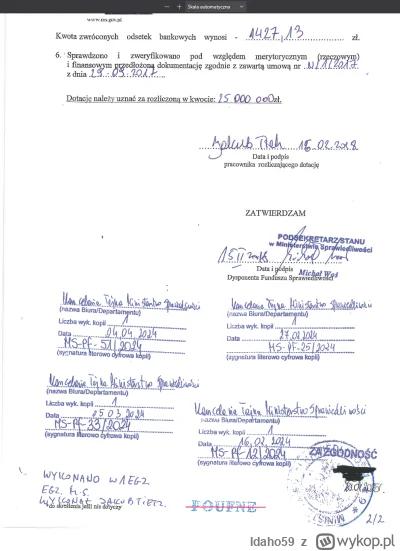 Skala automatyczna
www.ms.gov.pl
Kwota zwróconych odsetek bankowych wynosi - 1427,13 zł.
6. Sprawdzono i zweryfikowano pod względem merytorycznym (rzeczowym)
i finansowym przedłożoną dokumentację zgodnie z zawartą umową nr N/1/2017
z dnia 29.09.2017
Dotację należy uznać za rozliczoną w kwocie: 25 000 000zł.
Jakub 15.02.2018
Data i podpis
pracownika rozliczającego dotację
ZATWIERDZAM
PODSEKRETARZ STANU
w Ministerstwie Sprawiedliwości
15 II 2018
Data i podpis
Michał Woś
Dysponenta Funduszu Sprawiedliwości
Kancelaria Tajna Ministerstwo Sprawiedliwości
(nazwa Biura/Departamentu)
Liczba wyk. kopii 1
Data 04.04.2024
MS-PF-51/2024
(sygnatura literowo cyfrowa kopii)
Kancelaria Tajna Ministerstwo Sprawiedliwości
(nazwa Biura/Departamentu)
Liczba wyk. kopii 1
Data 27.02.2024
MS-PF-25/2024
(sygnatura literowo cyfrowa kopii)
Kancelaria Tajna Ministerstwo Sprawiedliwości
(nazwa Biura/Departamentu)
Liczba wyk. kopii 1
Data 05.03.2024
MS-PF-33/2024
(sygnatura literowo cyfrowa kopii)
Kancelaria Tajna Ministerstwo Sprawiedliwości
(nazwa Biura/Departamentu)
Liczba wyk. kopii 1
Data 16.02.2024
MS-PF-12/2024
(sygnatura literowo cyfrowa kopii)
ZA ZGODNOŚĆ
WYKONANO W 1 EGZ.
EGZ. M.S.
WYKONAŁ JAKUB TIETZ.
jeśli nie dotyczy
POUFNE
2/2
Idaho59 z wykop.pl